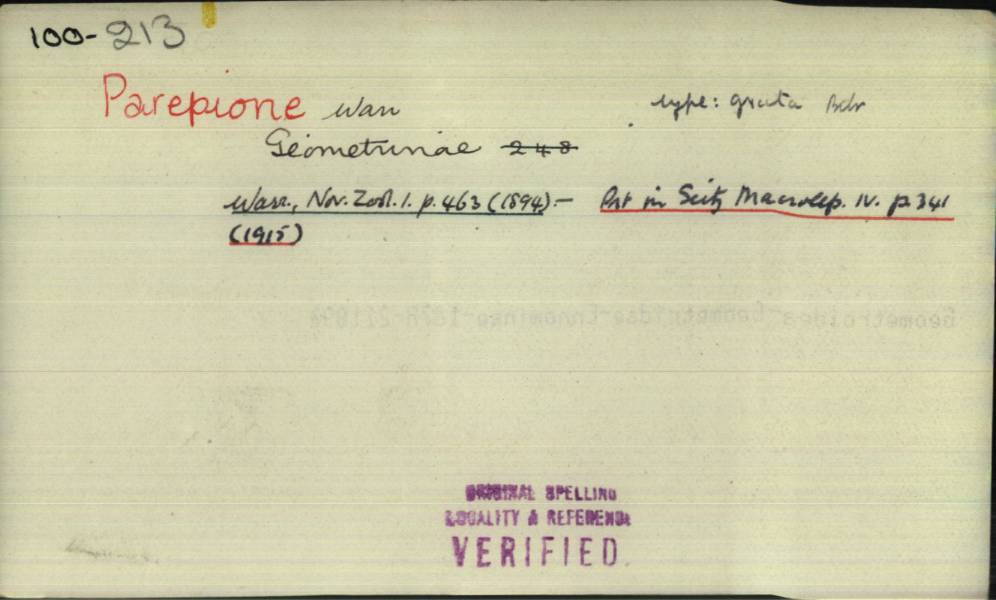 100-213
Parepione Warr type: grata Btlr
Geometrinae 248
Warr., Nov. Zool. 1. p. 463 (1894).— Prt in Seitz Macrolep. IV. p 341
(1915)
Geometroidea Geometridae Ennominae
ORIGINAL SPELLING
LOCALITY & REFERENCE
VERIFIED.